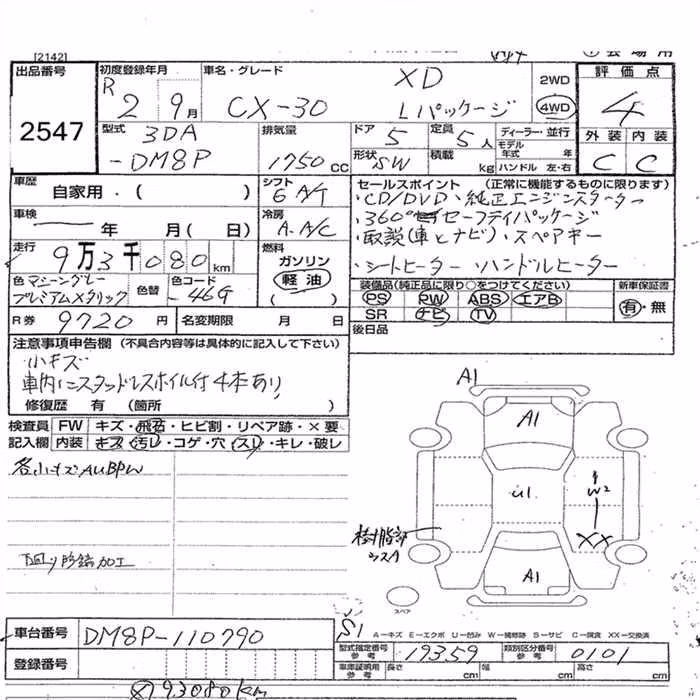 [2142]
出品番号
2547
初度登録年月
R 2 9月
車名・グレード
CX-30
XD
Lパッケージ
2WD
4WD
評価点
4
外装 内装
C C
型式
3DA
-DM8P
排気量
1750cc
ドア
5
定員
5人
形状
SW
積載
kg
ディーラー・並行
モデル年式 年
ハンドル 左・右
車歴
自家用・( )
シフト
6 A/T
車検
年 月(日)
冷房
A.A/C
走行
9万3千080km
燃料
ガソリン
軽油
( )
色 マシーングレー
プレミアムメタリック
色替
色コード
-46G
セールスポイント (正常に機能するものに限ります)
・CD/DVD・純正エンジンスターター
・360°セーフティパッケージ
・取説(車とナビ)・スペアキー
・シートヒーター・ハンドルヒーター
装備品(純正品に限り○をつけてください)
PS PW ABS エアB
SR ナビ TV
新車保証書
有・無
R券
9720円
名変期限 月 日
後日品
注意事項申告欄 (不具合内容等は具体的に記入して下さい)
小キズ
車内にスタッドレスホイル付4本あり
修復歴 有(箇所 )
検査員
記入欄
FW キズ・飛石・ヒビ割・リペア跡・×要
内装 キズ・汚レ・コゲ・穴・スレ・キレ・破レ
各小キズAUBPW
下回り防錆加工
A1
A1
U1
W2
XX
樹脂部
A1
スペア
S1
A−キズ E−エクボ U−凹み W−補修跡 S−サビ C−腐食 XX−交換済
車台番号
DM8P-110790
登録番号
型式指定番号
参考
19359
類別区分番号
参考
0101
車庫証明用
参考
長さ cm
幅 cm
高さ cm
93080km